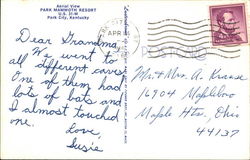 Aerial View
PARK MAMMOTH RESORT
U.S. 31-W
Park City, Kentucky
APR
Dear Grandma,
We went to
all different caves
One of them had
lots of bats and
I almost touched
one.
Love,
Susie
Mr. & Mrs. A. Krause
16704 Mapleboro
Maple Hts. Ohio
44137